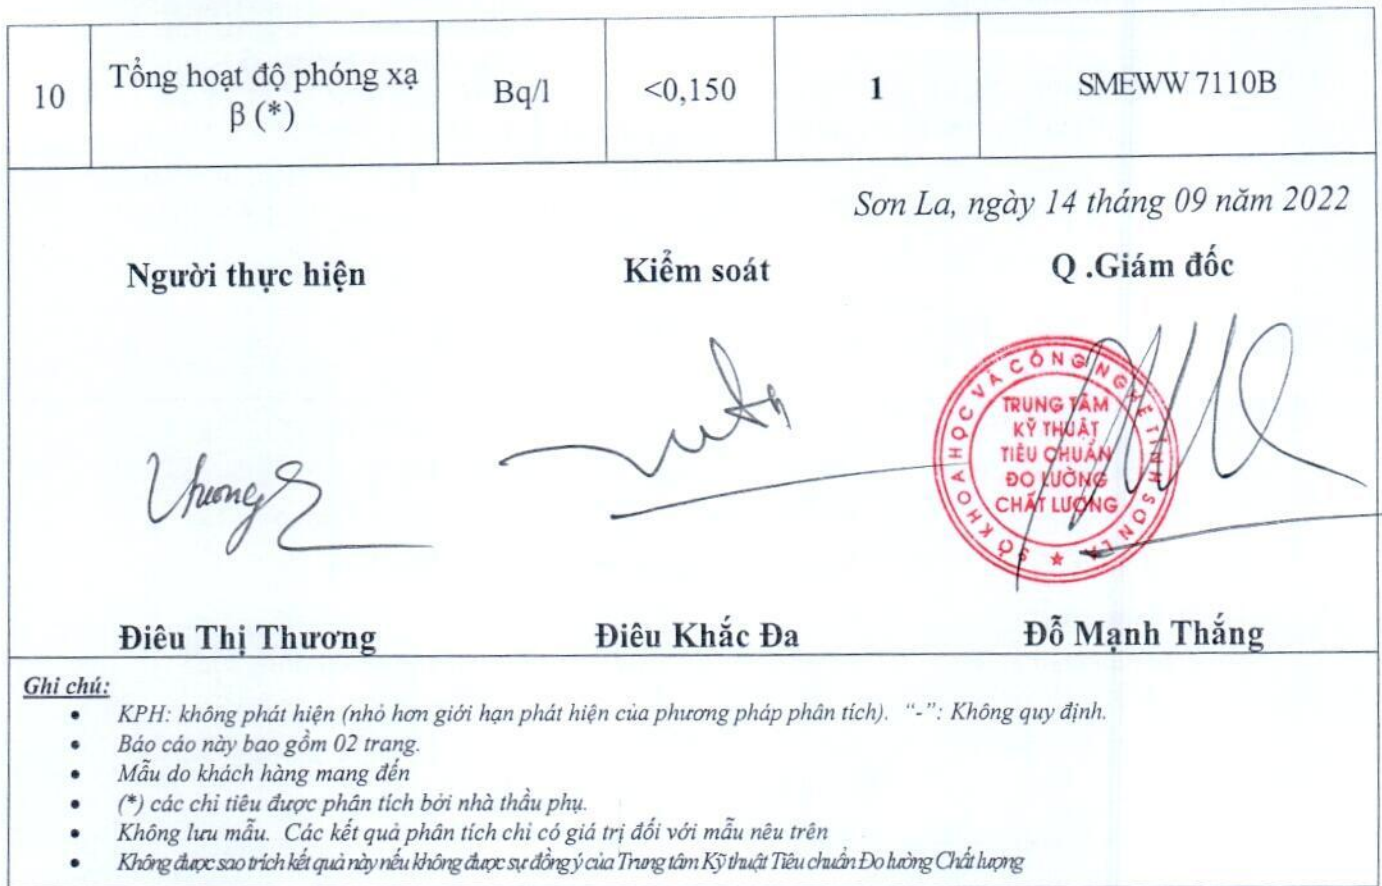 10 Tổng hoạt độ phóng xạ β (*) Bq/l <0,150 1 SMEWW 7110B
Sơn La, ngày 14 tháng 09 năm 2022
Người thực hiện Kiểm soát Q .Giám đốc
SỞ KHOA HỌC VÀ CÔNG NGHỆ TỈNH SƠN LA
TRUNG TÂM
KỸ THUẬT
TIÊU CHUẨN
ĐO LƯỜNG
CHẤT LƯỢNG
Thương
Điêu Thị Thương Điêu Khắc Đa Đỗ Mạnh Thắng
Ghi chú:
• KPH: không phát hiện (nhỏ hơn giới hạn phát hiện của phương pháp phân tích). “-”: Không quy định.
• Báo cáo này bao gồm 02 trang.
• Mẫu do khách hàng mang đến
• (*) các chỉ tiêu được phân tích bởi nhà thầu phụ.
• Không lưu mẫu. Các kết quả phân tích chỉ có giá trị đối với mẫu nêu trên
• Không được sao trích kết quả này nếu không được sự đồng ý của Trung tâm Kỹ thuật Tiêu chuẩn Đo lường Chất lượng